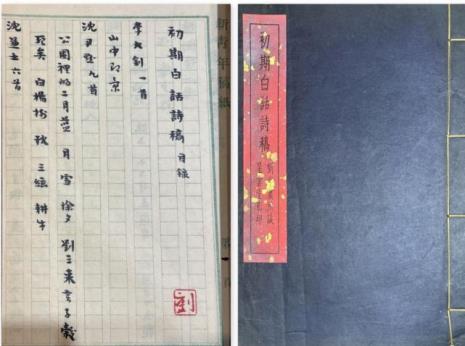 新青年稿紙
初期白話詩稿 目錄
李大釗一首
山中即景
沈尹默九首
公園裡的二月藍 月 雪 除夕 劉三來言子穀
死矣 白楊樹 秋 三絃 耕牛
沈兼士六首
劉
初期白話詩稿